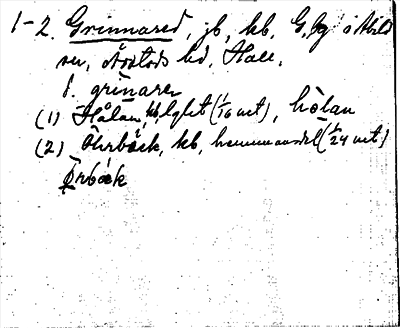 1-2. Grinnared, jb, kb, G, by i Abild
sn, Årstads hd, Hall.
1. grinarer
(1) Hålan, kb, lght (1/16 mt), hålan
(2) Öhrbäck, kb, hemmansdel (1/24 mt)
Örbäck